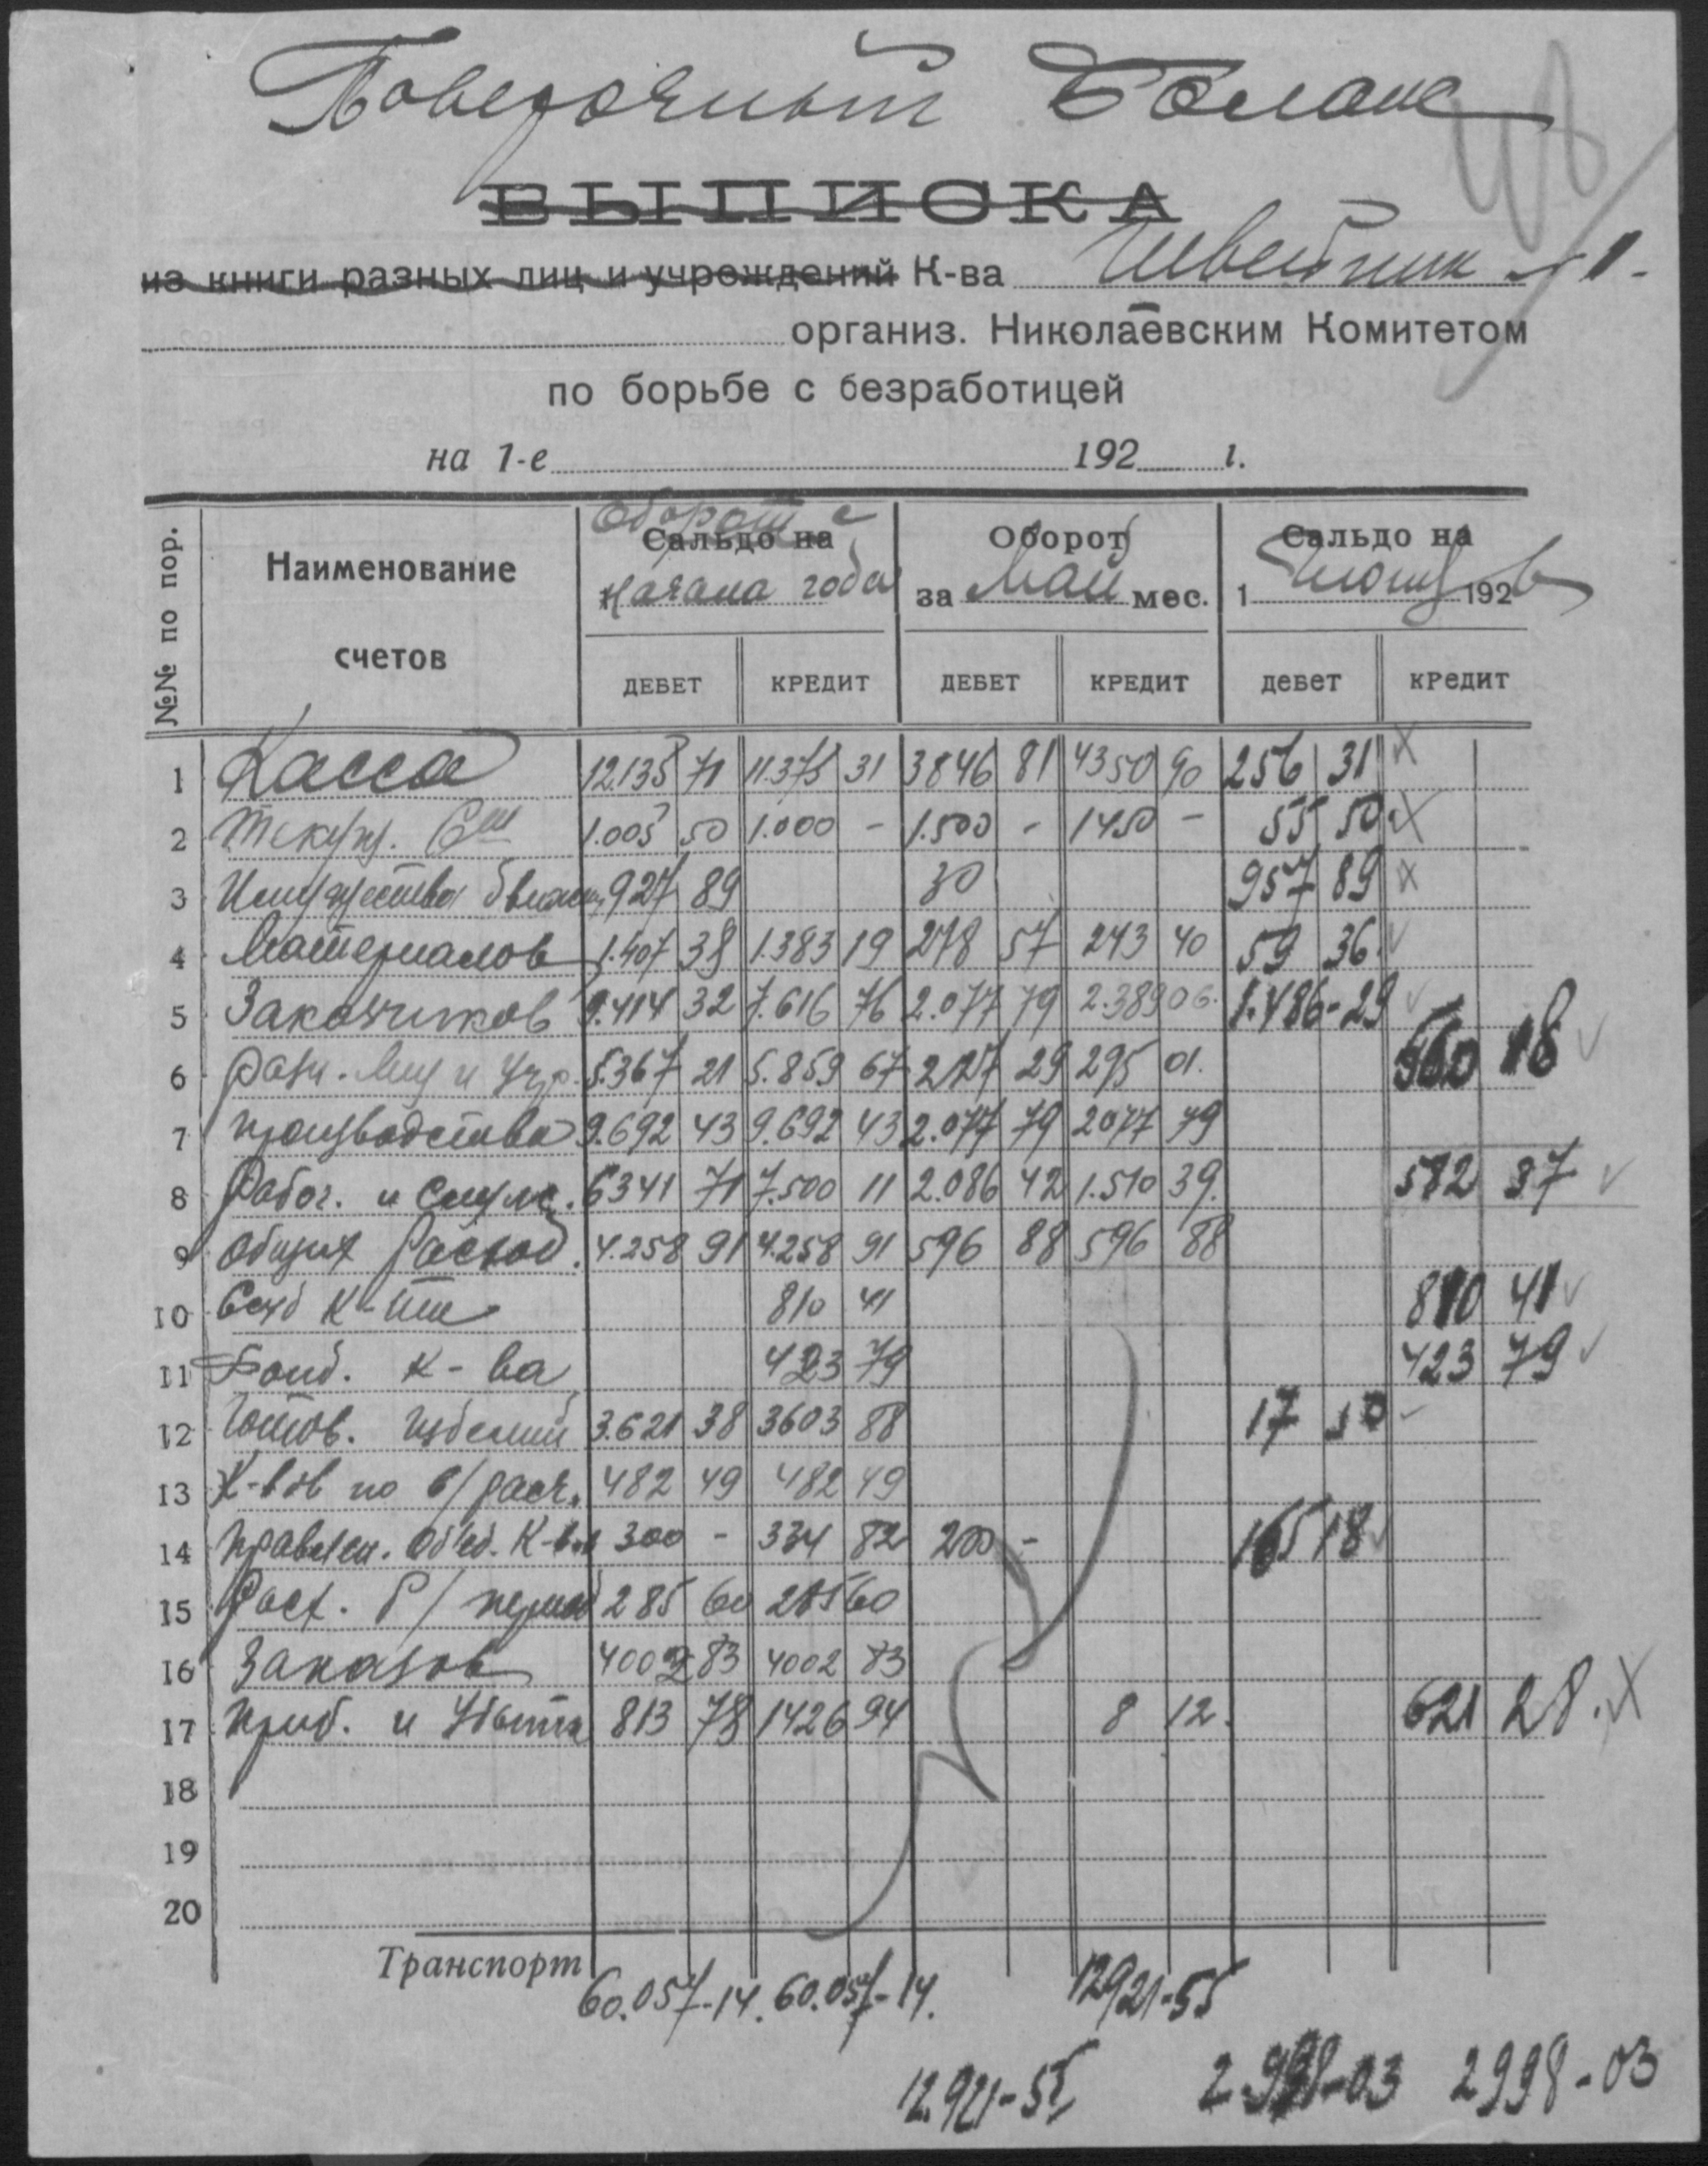 Поверочный Баланс
ВЫПИСКА
из книги разных лиц и учреждений К-ва Швейник №1.
организ. Николаевским Комитетом
по борьбе с безработицей
на 1-е 192 г.
№№ по пор.
Наименование счетов
Оборот с
Сальдо на
начала года
Оборот
за Май мес.
Сальдо на
1 Июня 1926
ДЕБЕТ КРЕДИТ ДЕБЕТ КРЕДИТ дебет кредит
1 Касса 12.135 71 11.375 31 3846 81 4350 90 256 31
2 Текущ. Сч 1.005 50 1.000 - 1.500 - 1450 - 55 50
3 Имущества движим. 927 89 30 957 89
4 Материалов 1.407 38 1.383 19 278 57 243 40 59 36
5 Заказчиков 9.414 32 7.616 76 2.077 79 2.389 06 1.486-29
6 Разн. Лиц и Учр. 5.367 21 5.859 67 227 29 295 01 560 18
7 производства 9.692 43 9.692 43 2.077 79 2077 79
8 Рабоч. и служ. 6341 71 7.500 11 2.086 42 1.510 39 582 37
9 Общих Расход. 4.258 91 4.258 91 596 88 596 88
10 Ссуд К-та 810 41 810 41
11 Фонд. К-ва 423 79 423 79
12 Готов. изделий 3.621 38 3603 88 17 50
13 К-вов по в/расч. 482 49 482 49
14 Правлен. Об'ед. К-вов 300 - 334 82 200 - 165 18
15 Расх. б/ период 285 60 285 60
16 Заказов 4002 83 4002 83
17 приб. и Убытк 813 78 1426 94 8 12 621 28
18
19
20
Транспорт 60.057-14. 60.057-14. 12921-55
12.921-55 2.998-03 2998-03